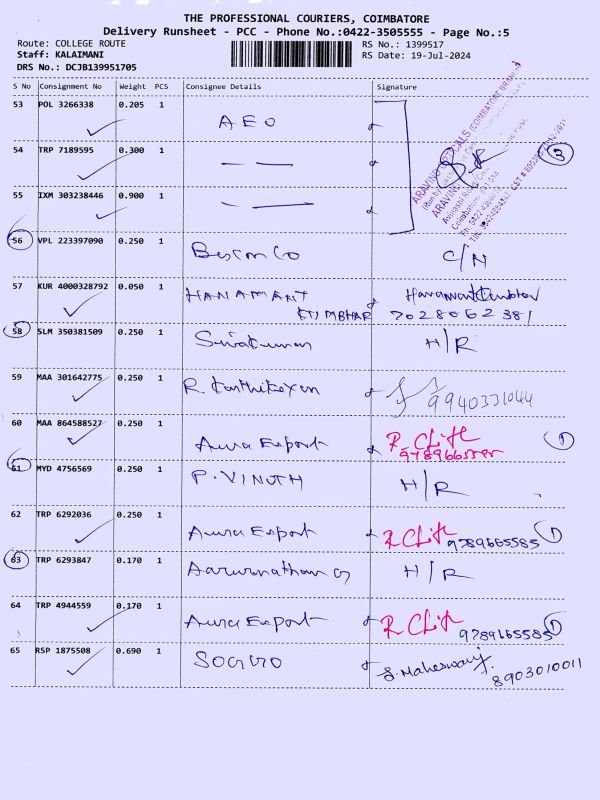 THE PROFESSIONAL COURIERS, COIMBATORE
Delivery Runsheet - PCC - Phone No.:0422-3505555 - Page No.:5
Route: COLLEGE ROUTE
RS No.: 1399517
Staff: KALAIMANI
RS Date: 19-Jul-2024
DRS No.: DCJB139951705
S No Consignment No Weight PCS Consignee Details Signature
53 POL 3266338 0.205 1 AEO
54 TRP 7189595 0.300 1 3
55 IXM 303238446 0.900 1
ARAVIND
56 VPL 223397090 0.250 1 C/N
57 KUR 4000328792 0.050 1 HANAMANT
KUMBHAR 7028062381
58 SLM 350381509 0.250 1 Sivakumar H/R
59 MAA 301642775 0.250 1 R. Karthikeyan 9940331044
60 MAA 864588527 0.250 1 Aura Export 1
61 MYD 4756569 0.250 1 P. VINOTH H/R
62 TRP 6292036 0.250 1 Aura Export 9789665585 1
63 TRP 6293847 0.170 1 H/R
64 TRP 4944559 0.170 1 Aura Export 9789665585 1
65 RSP 1875508 0.690 1 S. Maheswari
8903010011